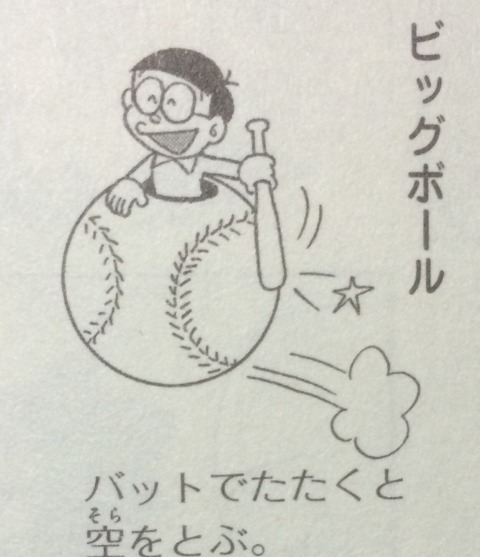 ビッグボール
バットでたたくと
空をとぶ。
そら